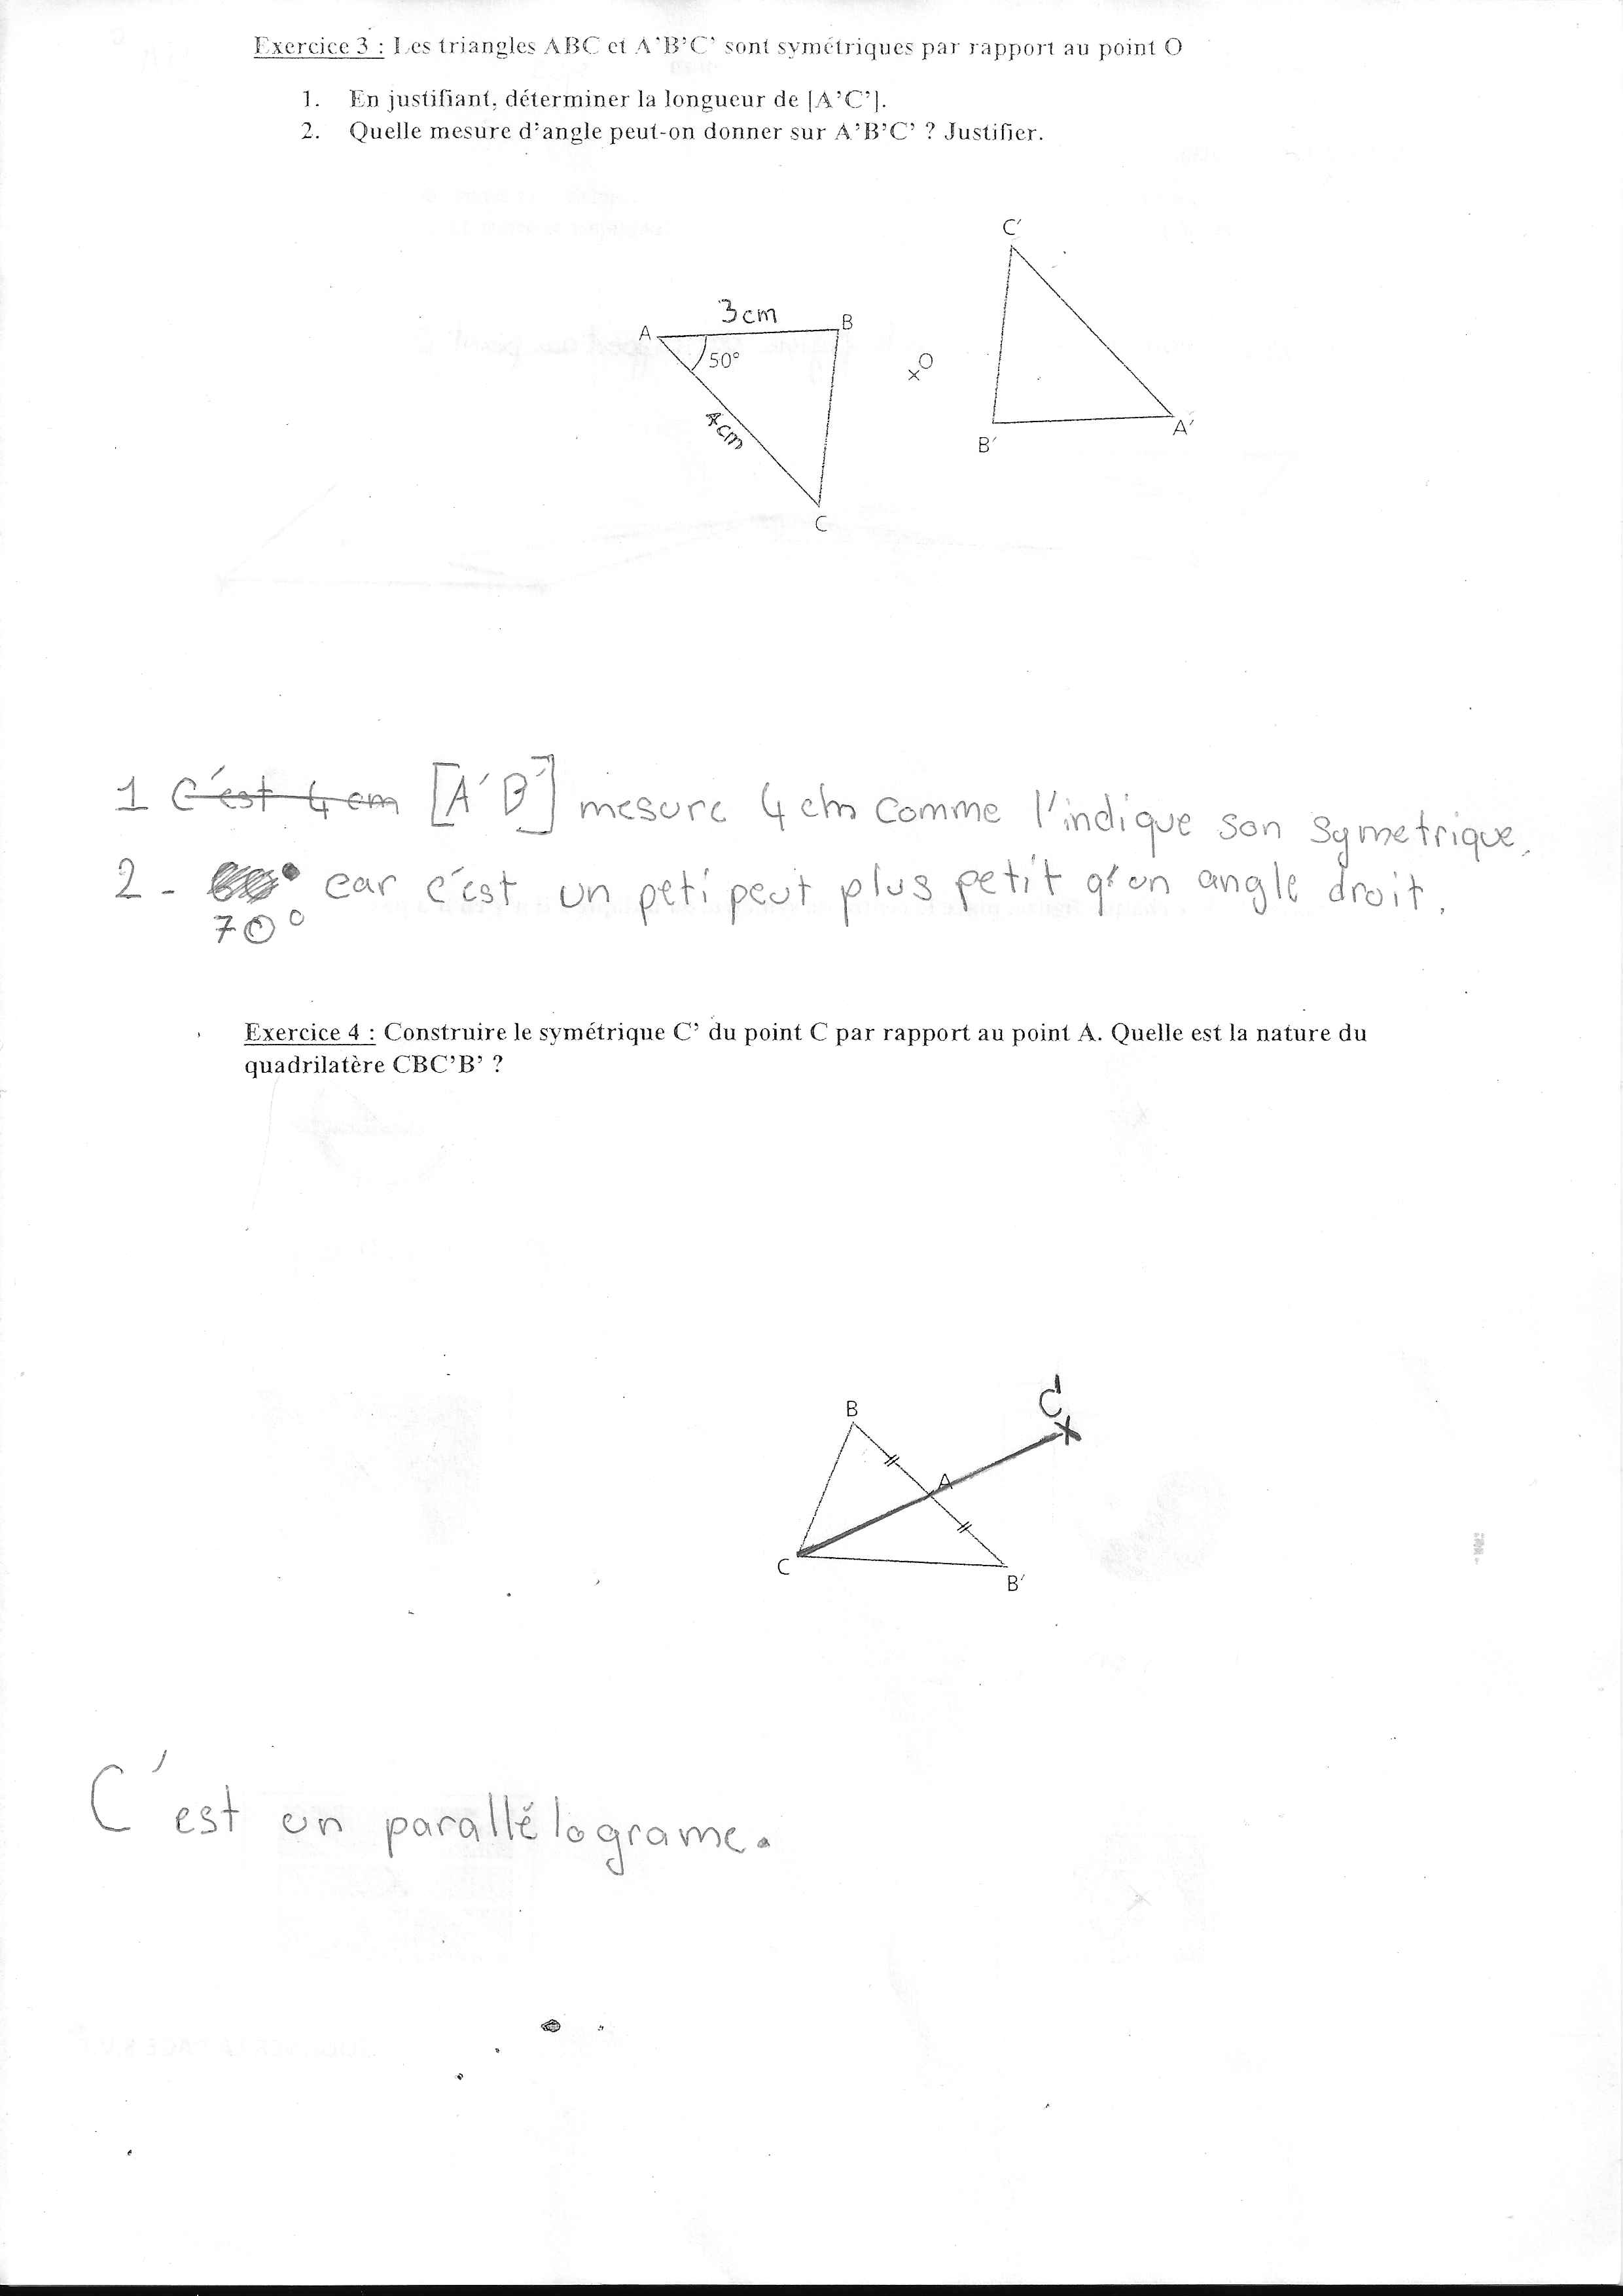 Exercice 3 : Les triangles ABC et A'B'C' sont symétriques par rapport au point O
1. En justifiant, déterminer la longueur de [A'C'].
2. Quelle mesure d'angle peut-on donner sur A'B'C' ? Justifier.
C'
3cm
A
B
50°
O
4cm
A'
B'
C
1 C'est 4 cm [A'B'] mesure 4 cm comme l'indique son symetrique.
2 - car c'est un peti peut plus petit q'un angle droit.
70°
Exercice 4 : Construire le symétrique C' du point C par rapport au point A. Quelle est la nature du
quadrilatère CBC'B' ?
C'
B
A
C
B'
C'est un parallélograme.